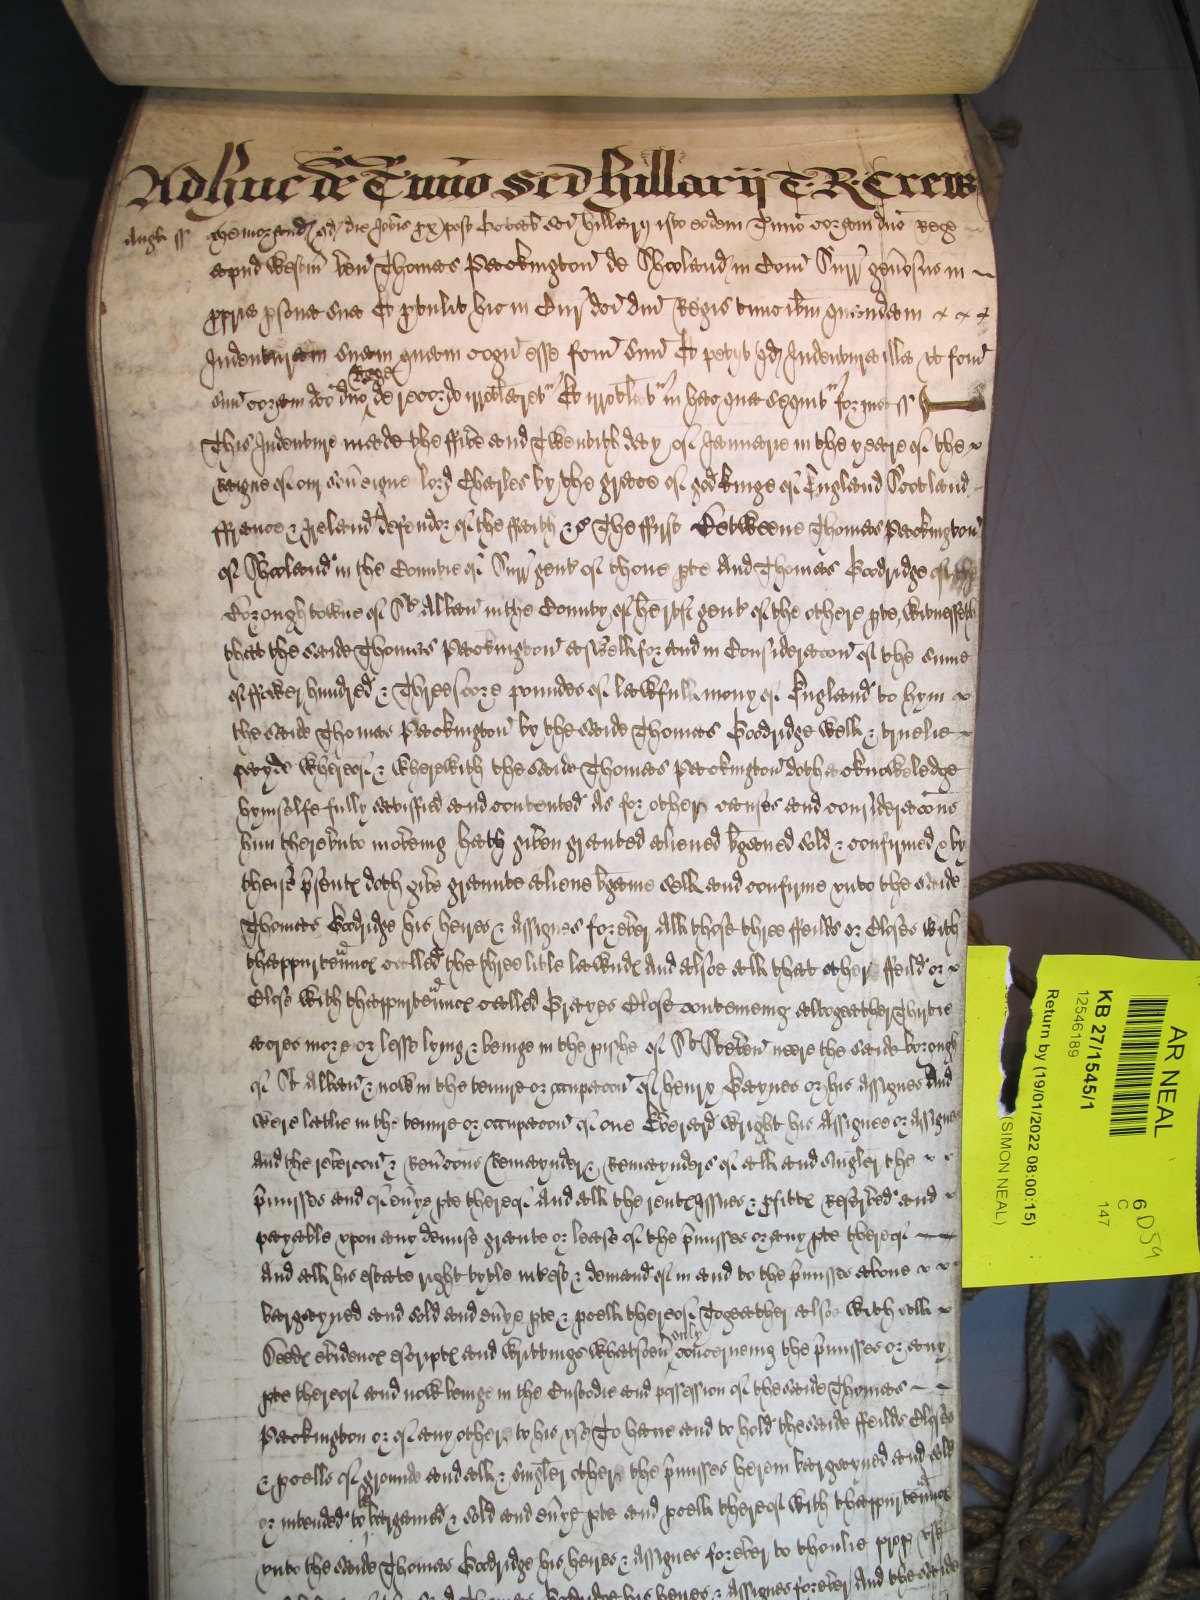 Adhuc de Tmino Scd hillarij T. R. Crew
Angli ss Memorand qd die Jovis px post Octab Sci Hillarij isto eodem Tmino coram dno Rege
apud Westm ven Thomas Packington de Sheeland in Com Surr genosus in
ppria psona sua Et ptulit hic in Cur dci dni Regis tunc ibm quandam
Indenturam suam quam cogn esse fcm suu Et petijt qd Indentura illa vt fcm
Rege
suu coram dco dno de recordo irrotlaret Et irrotlat in hac que sequit forma ss
This Indenture made the ffive and Twentith day of Januarie in the yeare of the
raigne of our Soveigne lord Charles by the grace of god kinge of England Scotland
ffrance & Ireland defendor of the ffaith &c The ffirst Betweene Thomas Packington
of Sheeland in the Countie of Surr gent of thone pte And Thomas Goodridge of the
Borough towne of St Alban in the County of hertf gent of the othere pte, witnesseth
that the saide Thomas Packington aswell for and in Consideracon of the sume
of ffower hundred & Threescore poundes of lawfull mony of England to hym
the saide Thomas Packington by the saide Thomas Goodridge well & truelie
payde whereof & wherewith the saide Thomas Packington doth acknowledge
hymselfe fully satisfied and contented As for other causes and consideracons
him therevnto moveing hath given graunted aliened bgained sold & confirmed & by
theise psents doth give graunte aliene bgaine sell and confirme vnto the saide
Thomas Goodridge his heires & Assignes forever All those three ffeilds or Closes with
thappurtennce called the three litle lawnds And alsoe all that other ffeild or
Close with thappurtennce called Grayes Close conteineing altogeather Thirtie
acres more or lesse lying & beinge in the pishe of St Steven neere the saide borough
of St Alban & now in the tenure or occupacon of henry Gaynes or his Assignes And
were latlie in the tenure or occupacon of one Everard wright his Assignee or Assignes
And the revercon & Revcons Remaynder & Remaynders of all and singler the
pmisses and of evye pte thereof And all the rents Issues & pfitts Reserved and
payable vpon any demise graunte or lease of the pmisses or any pte thereof
And all his estate right tytle intrest & demand of in and to the pmisses above
bargayned and sold and evye pte & pcell thereof Togeather alsoe with all
only
Deeds evidence escripts and writtings whatsoev concerneing the pmisses or any
pte thereof and now beinge in the Custodie and possession of the saide Thomas
Packington or of any other to his vse To have and to hold the saide ffeilds Closes
& pcells of grounde and all & singler other the pmisses herein bargayned and sold
be
or intended to bargained & sold and evye pte and pcell thereof with thappurtennce
vnto the saide Thomas Goodridge his heires & Assignes forever to thonlie prop vse
Thomas Goodridge his heires & Assignes forever And the saide
AR NEAL
6 D59
C
147
KB 27/1545/1
12546189
Return by (19/01/2022 08:00:15)
(SIMON NEAL)